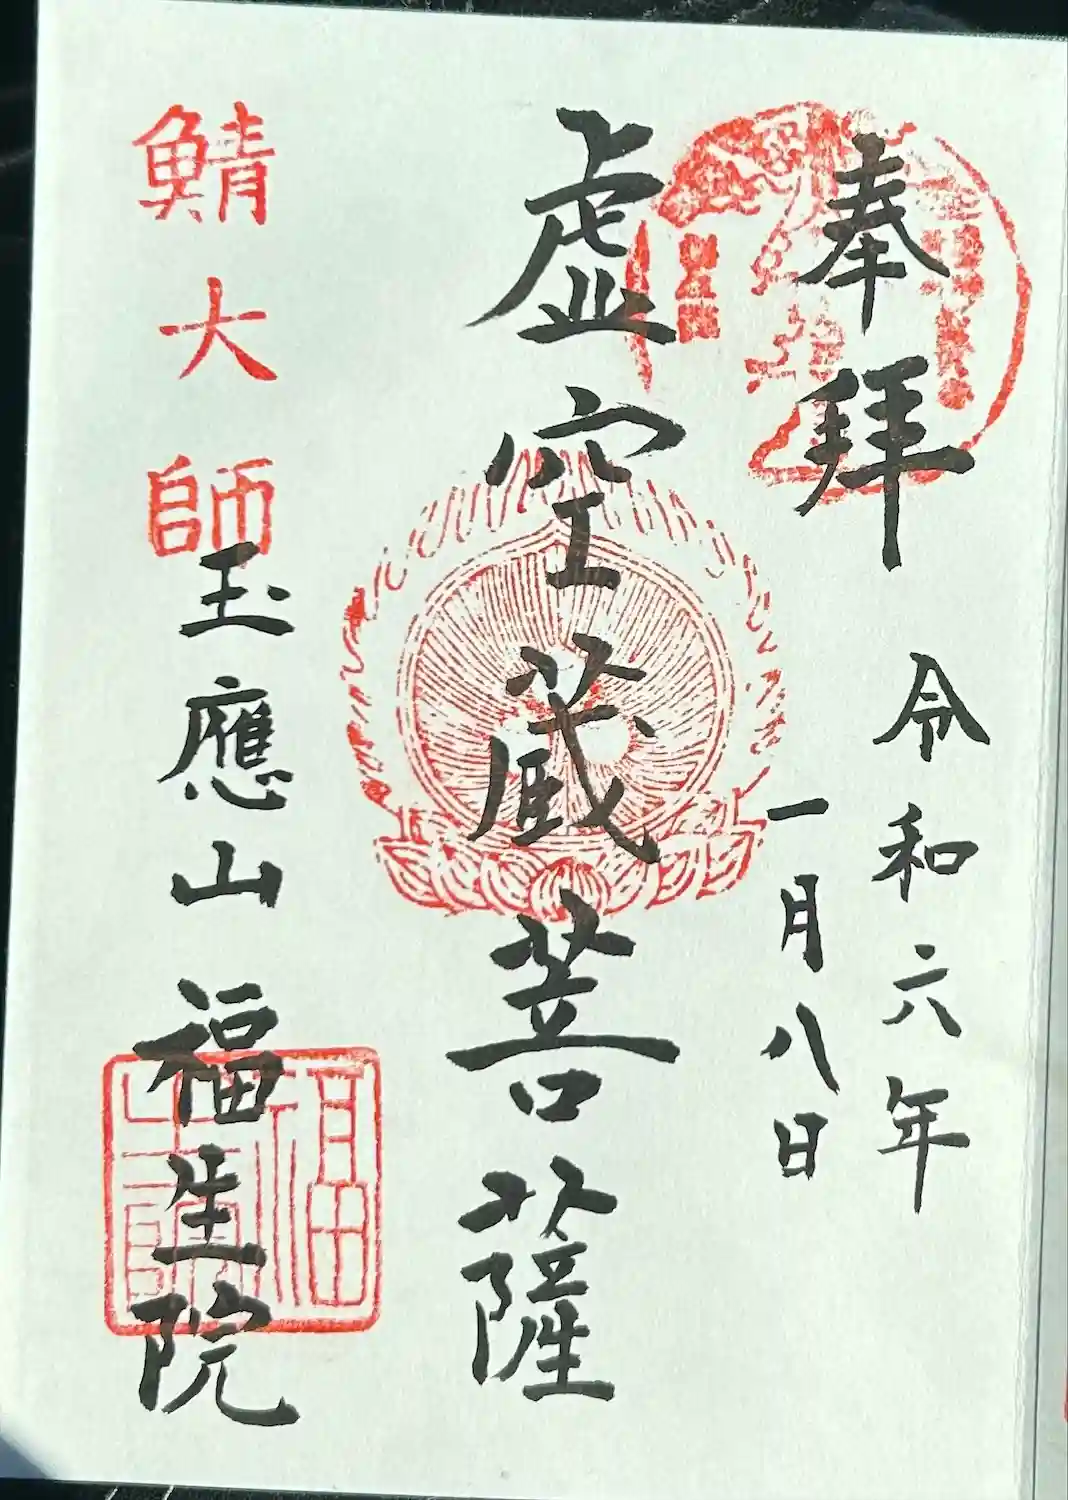 奉拜
令和六年
一月八日
虚空蔵菩薩
鯖大師
玉應山 福生院